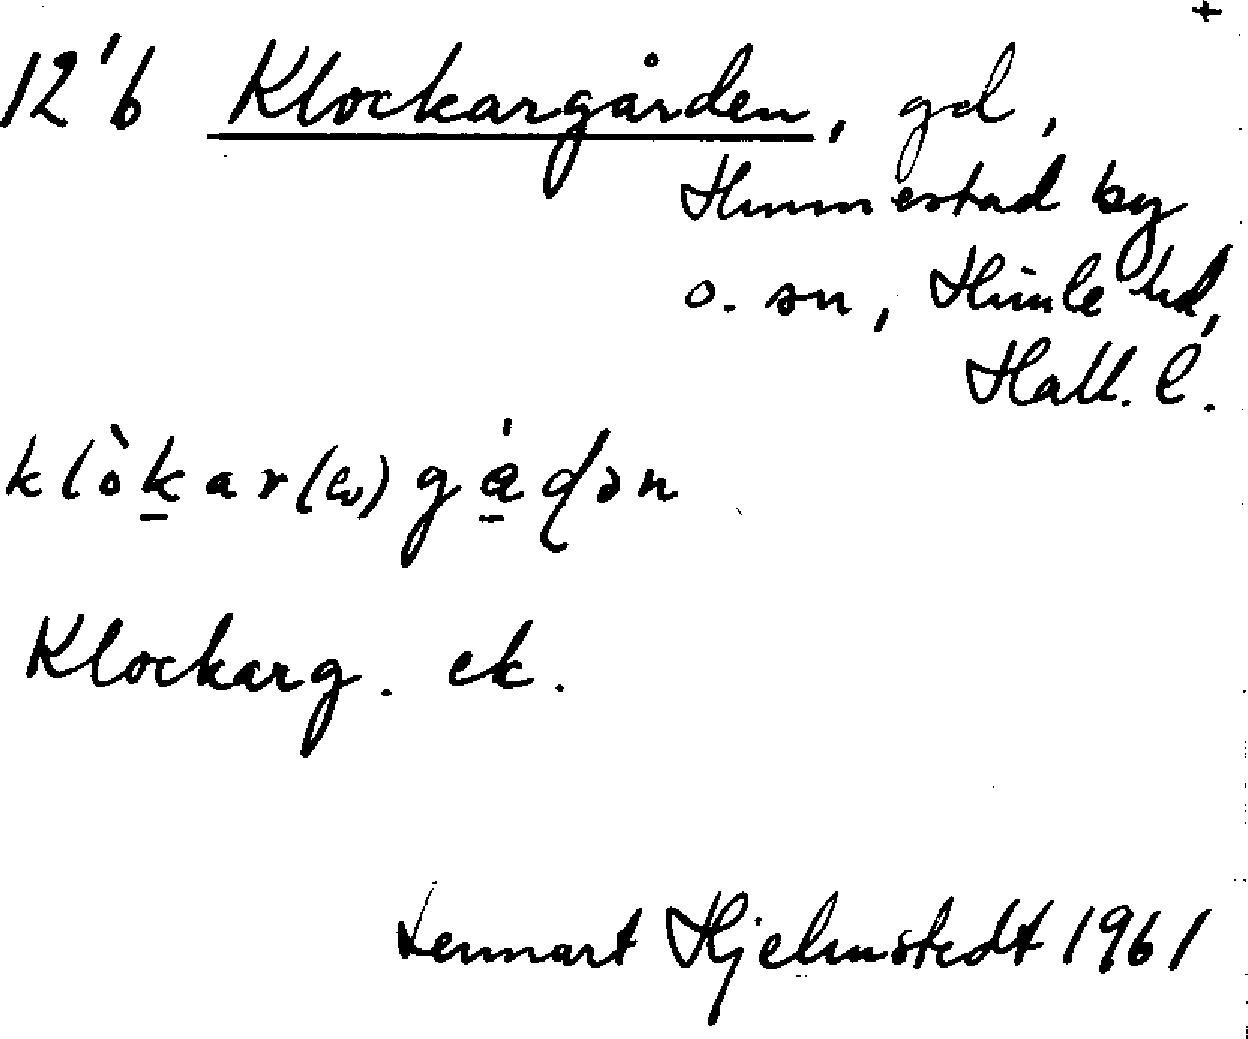 +
12'6 Klockargården, gd,
Hunnestad by
o. sn, Himle hd,
Hall. l.
klòkar(e)gá̱ḍən
Klockarg. ek.
Lennart Hjelmstedt 1961